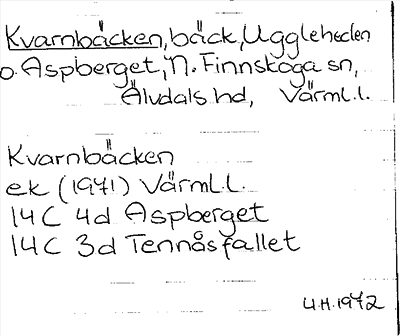 Kvarnbäcken, bäck, Uggleheden
o. Aspberget, N. Finnskoga sn,
Älvdals hd, Värml. l.
Kvarnbäcken
ek (1971) Värml. l.
14C 4d Aspberget
14C 3d Tennåsfallet
U.H. 1972